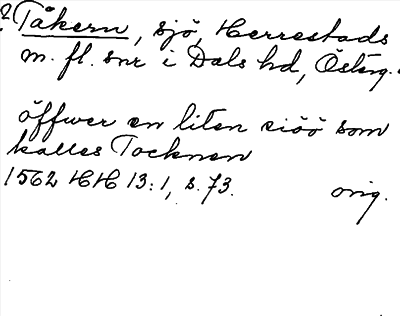 ? Tåkern, sjö, Herrestads
m. fl. snr i Dals hd, Österg.
öffwer en liten siöö som
kalles Tocknen
1562 HH 13:1, s. 73. orig.